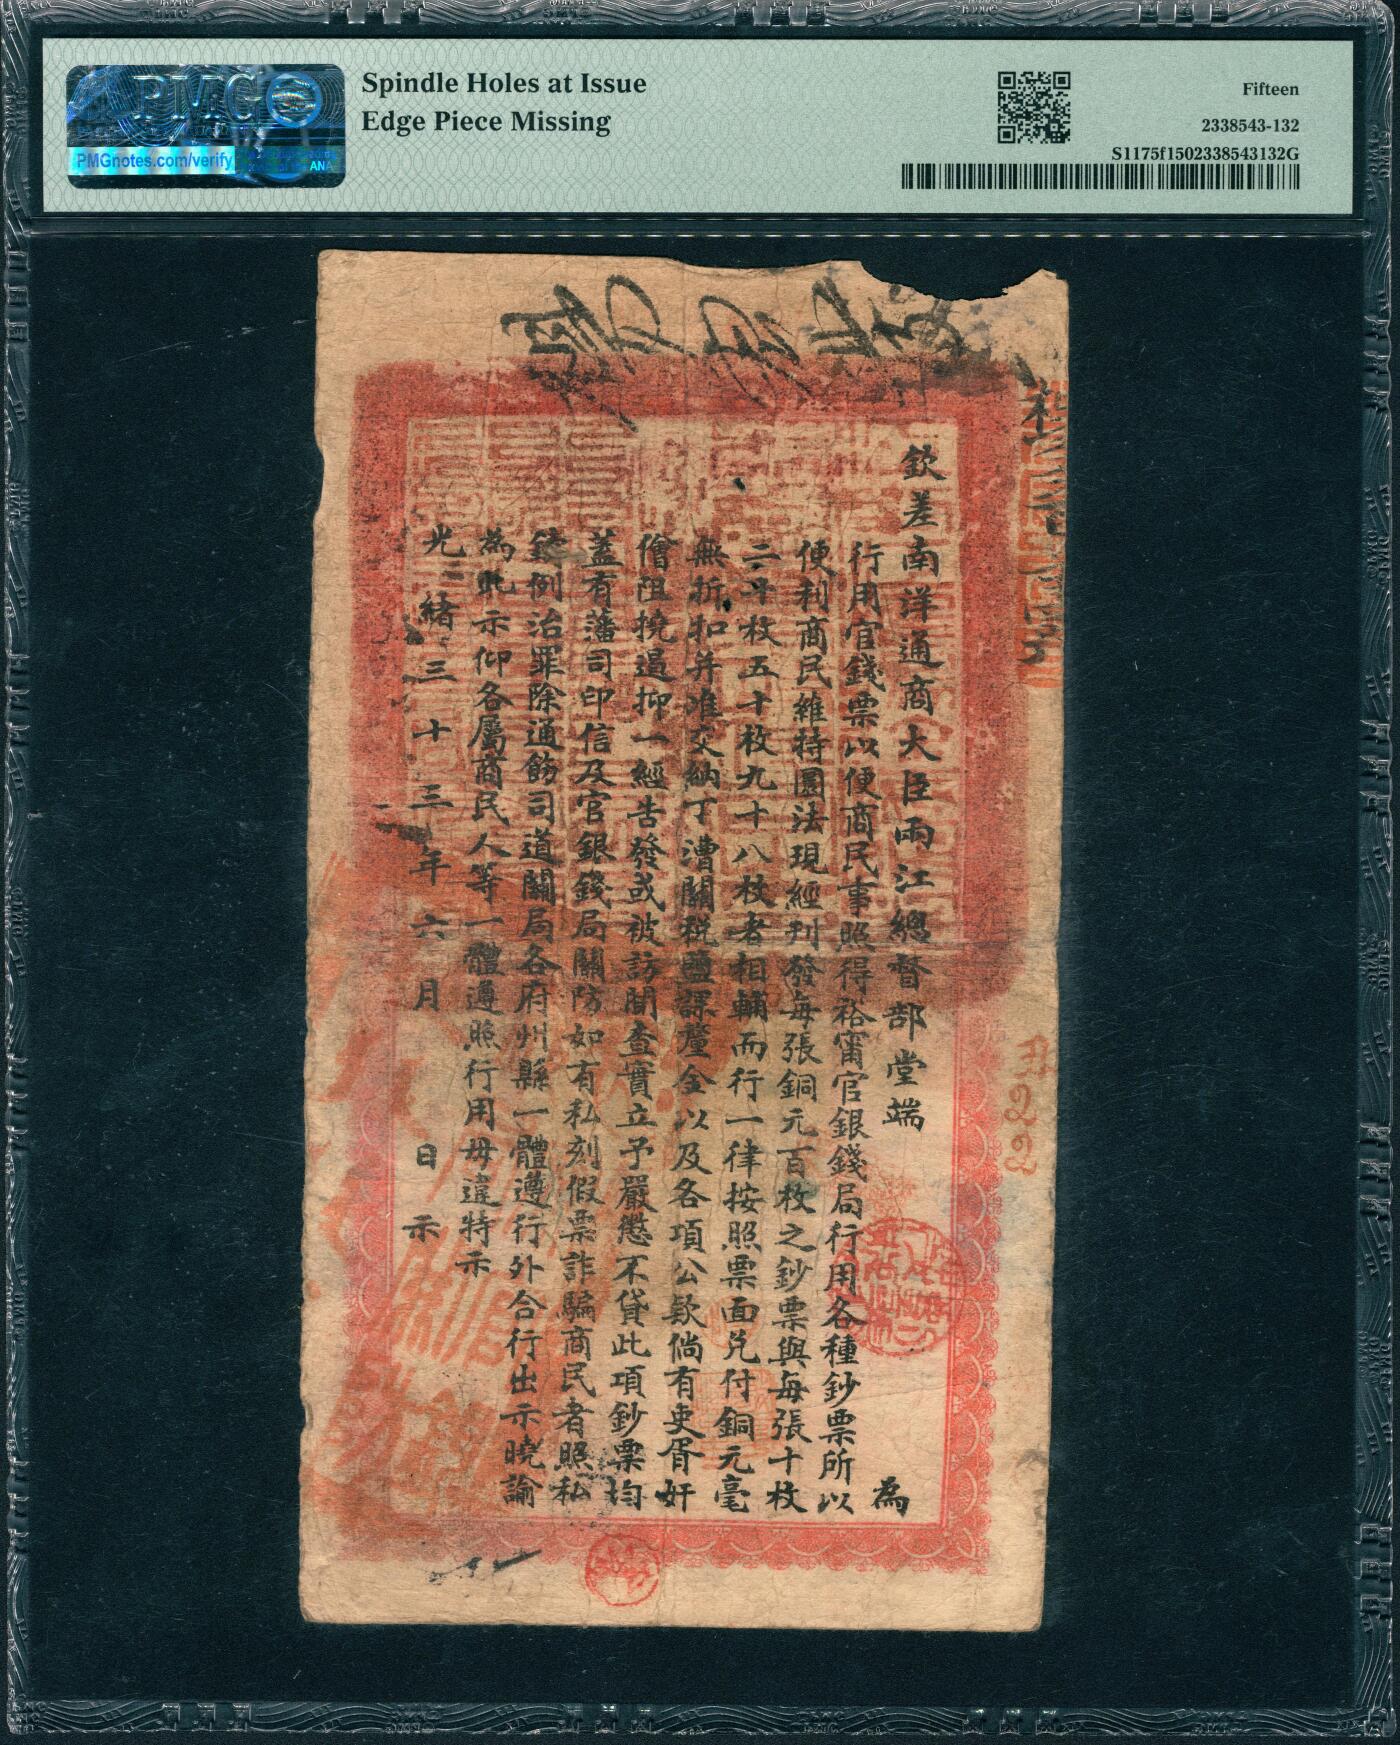 PMG
PMGnotes.com/verify
ANA
Spindle Holes at Issue
Edge Piece Missing
Fifteen
2338543-132
S1175f1502338543132G
欽差南洋通商大臣兩江總督部堂端 為
行用官錢票以便商民事照得裕甯官銀錢局行用各種鈔票所以
便利商民維持圜法現經刊發每張銅元百枚之鈔票與每張十枚
二十枚五十枚九十八枚者相輔而行一律按照票面兌付銅元毫
無折扣并准交納丁漕關稅鹽課釐金以及各項公欵倘有吏胥奸
儈阻撓遏抑一經告發或被訪聞查實立予嚴懲不貸此項鈔票均
蓋有藩司印信及官銀錢局關防如有私刻假票詐騙商民者照私
鑄例治罪除通飭司道關局各府州縣一體遵行外合行出示曉諭
為此示仰各屬商民人等一體遵照行用毋違特示
光緒三十三年六月 日示